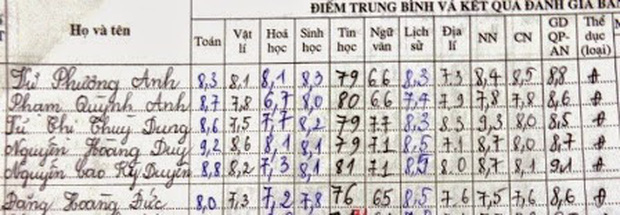 ĐIỂM TRUNG BÌNH VÀ KẾT QUẢ ĐÁNH GIÁ
Họ và tên Toán Vật lí Hoá học Sinh học Tin học Ngữ văn Lịch sử Địa lí NN CN GD QP-AN Thể dục (loại)
Từ Phương Anh 8,3 8,1 8,1 8,3 79 66 8,3 73 8,4 8,5 8,8 Đ
Phạm Quỳnh Anh 8,7 7,8 6,7 8,0 80 66 7,4 79 7,8 7,8 8,6 Đ
Từ Thị Thuỳ Dung 8,6 7,5 7,7 8,2 79 77 8,3 83 9,3 8,0 8,5 Đ
Nguyễn Hoàng Duy 9,2 8,6 8,1 8,1 79 71 8,5 71 8,7 8,0 8,7 Đ
Nguyễn Cao Kỳ Duyên 8,8 8,2 7,3 8,1 81 71 8,5 80 8,7 8,1 9,1 Đ
Đặng Hoàng Đức 8,0 7,3 7,2 7,8 76 65 8,5 76 7,5 7,6 8,6 Đ